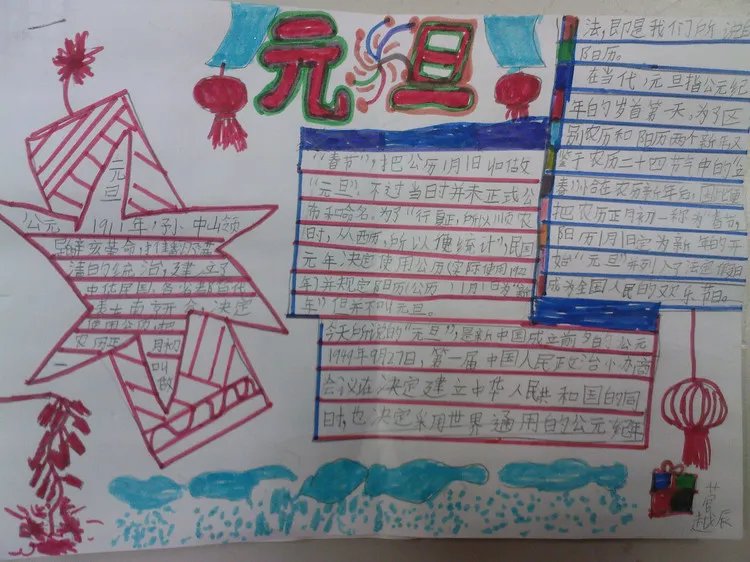 元旦
元旦
公元 1911年,孙中山领
导辛亥革命,打垮了
清的统治,建立了
中华民国,各省都督代
表在南京开会,决定
使用公历,把
农历正月初
一叫做
"春节",把公历1月1日叫做
"元旦",不过当时并未正式公
布和命名。为了"行夏正,所以顺农
时,从西历,所以便统计",民国
元年决定使用公历(实际使用1912
年)并规定阳历(公历)1月1日为"新
年"但并不叫元旦。
今天所说的"元旦",是新中国成立前夕的公元
1949年9月27日,第一届中国人民政治协商
会议在决定建立中华人民共和国的同
时,也决定采用世界通用的公元纪年
法,即是我们所说
阳历。
在当代,元旦指公元纪
年的岁首第一天,为了区
别农历和阳历两个新年又
鉴于农历二十四节气中的"立
春"恰在农历新年
把农历正月初一称为"春节",
阳历1月1日定为新年的开
始"元旦"并列入了法定假日
成为全国人民的欢乐节日。